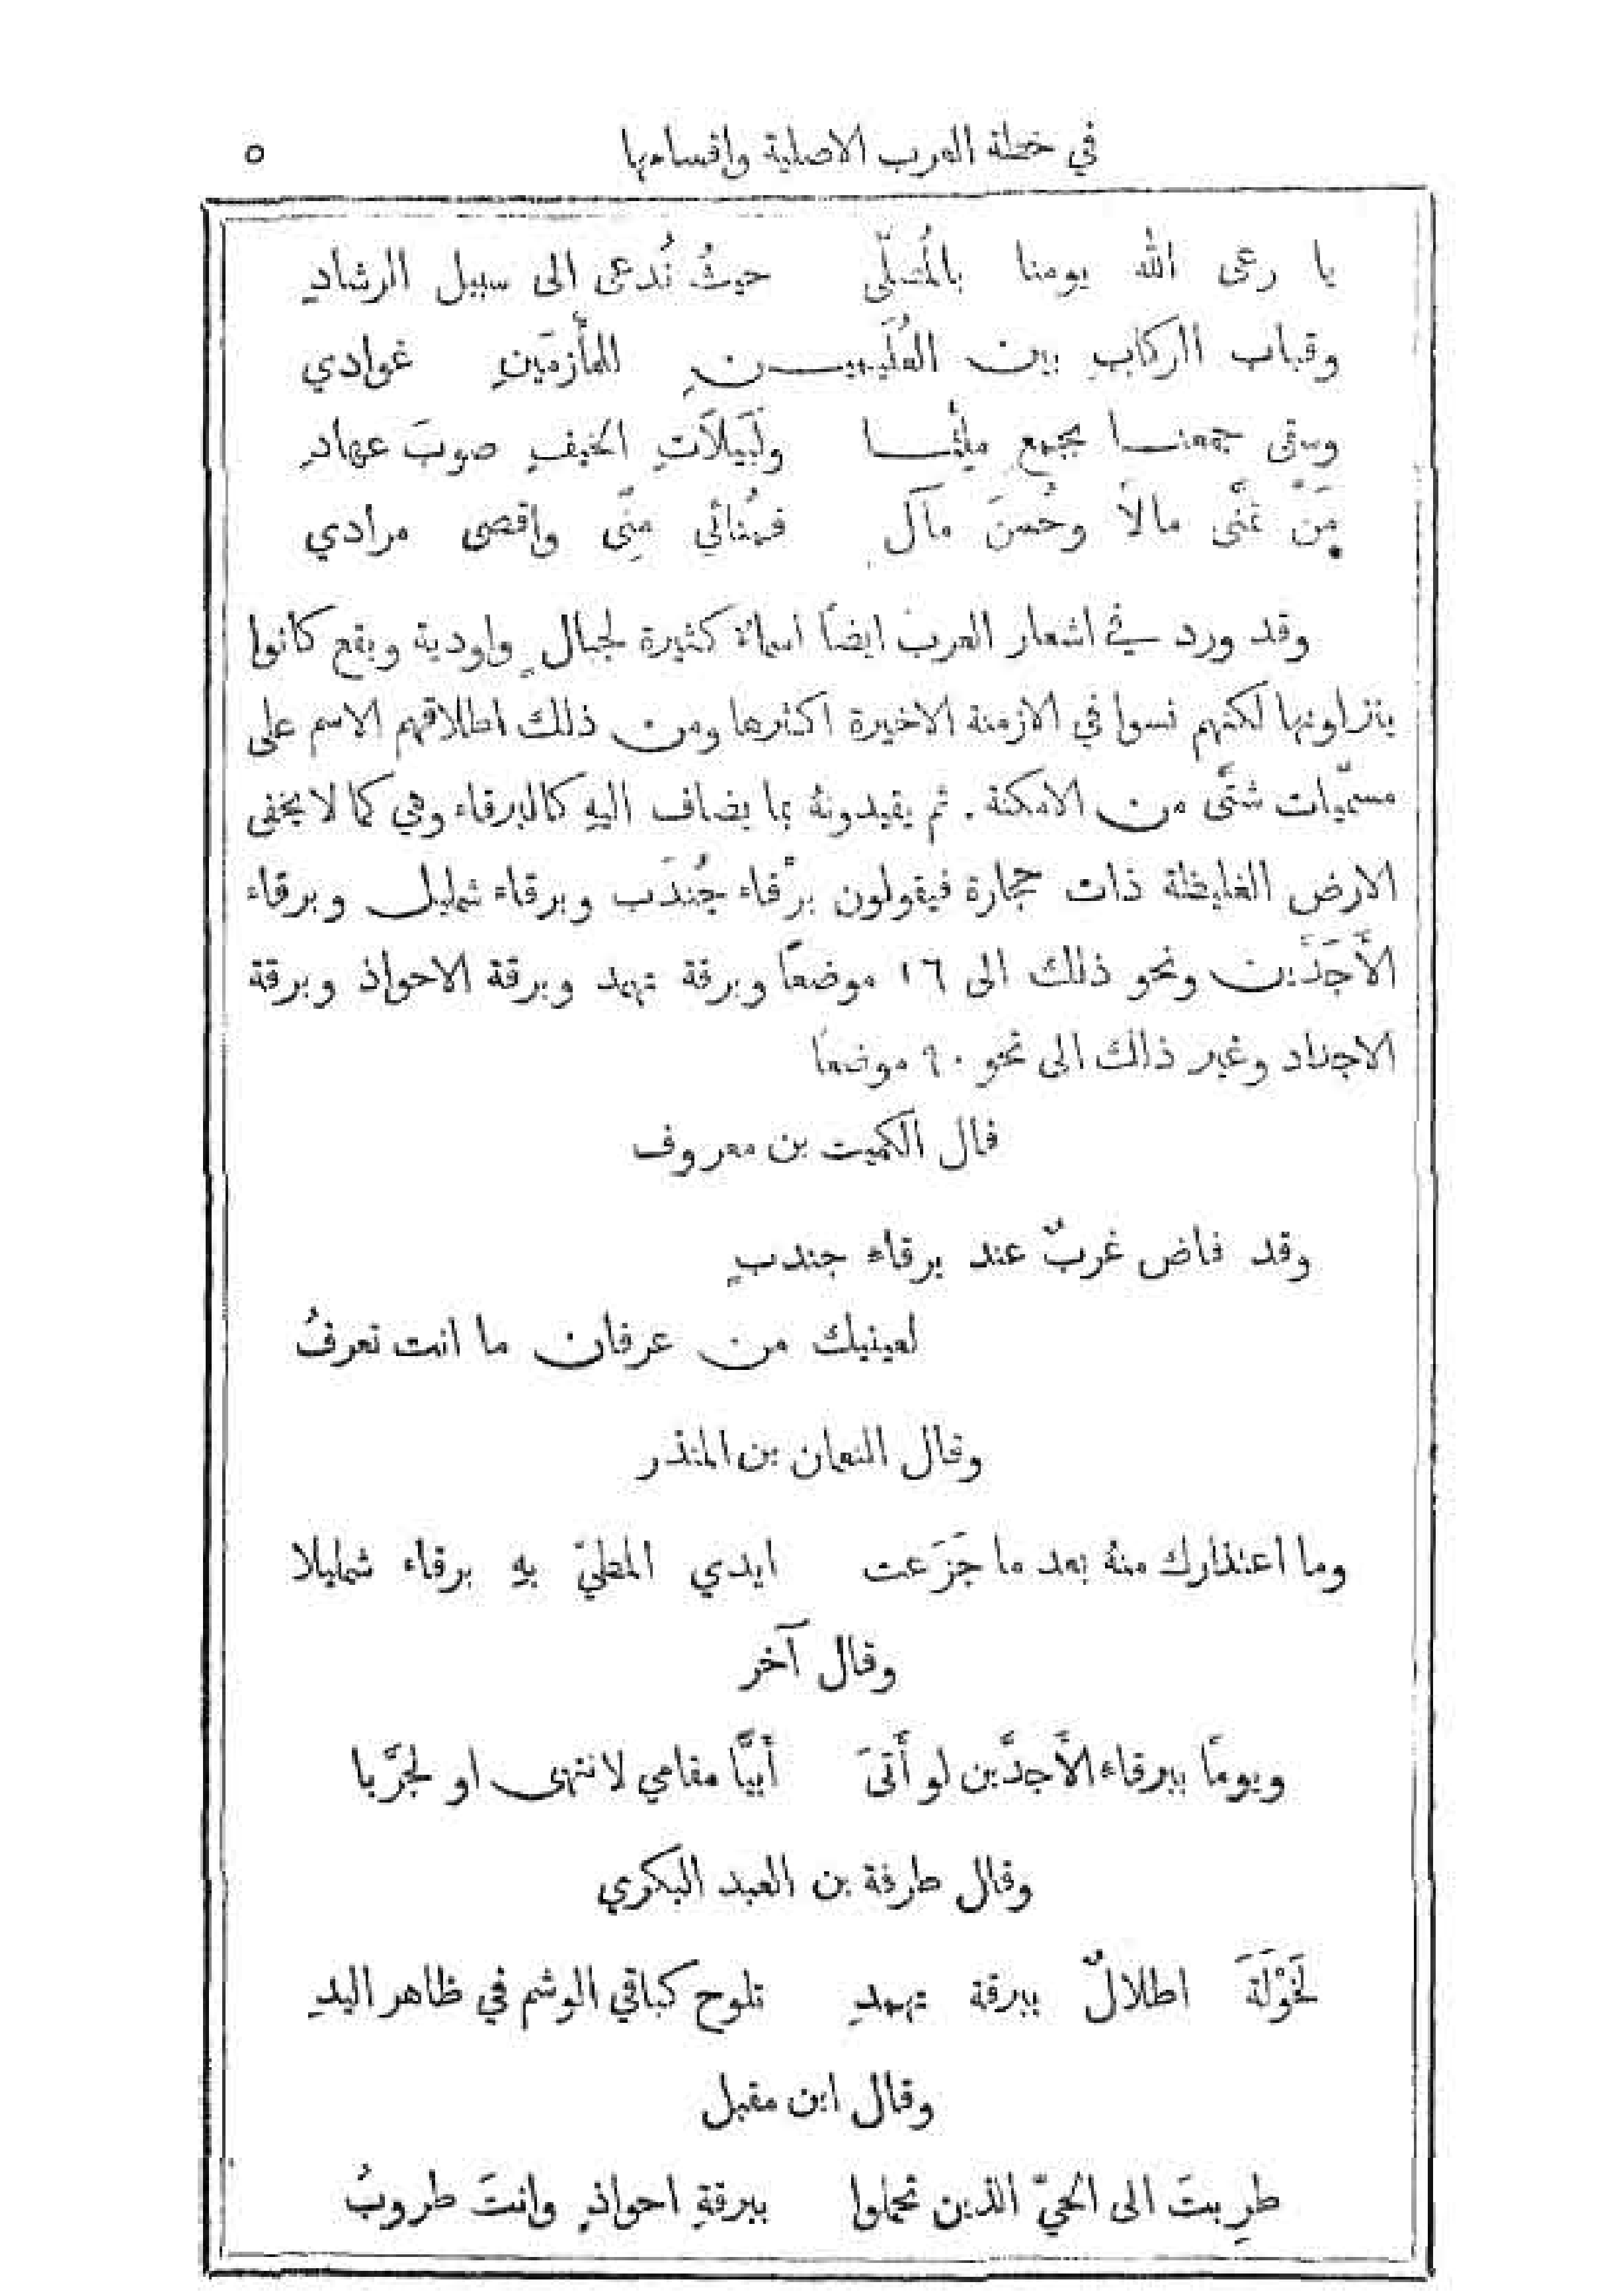 في خطة العرب الاصلية واقسامها ٥
يا رعى الله يومنا بالمُصلَّى حيثُ نُدعى الى سبيل الرشادِ
وقباب الركابِ بين العُلَيميـــنِ للمأزمَينِ غوادي
وسقى جمعنـــا بجمعٍ ملثـــا ولُيَيلاَتِ الخيفِ صوبَ عهادِ
مَنْ تمنَّى مالاً وحُسنَ مآلٍ فمُنائي مِنًى واقصى مرادي
وقد ورد في اشعار العرب ايضاً اسماءٌ كثيرة لجبالٍ واودية وبقع كانوا
ينزلونها لكنهم نسوا في الازمنة الاخيرة اكثرها ومن ذلك اطلاقهم الاسم على
مسمّيات شتَّى من الامكنة . ثم يقيدونهُ بما يضاف اليهِ كالبرقاء وهي كما لا يخفى
الارض الغليظة ذات حجارة فيقولون برْقاء جُندَب وبرقاء شمليل وبرقاء
الأَجَدَّين ونحو ذلك الى ١٦ موضعاً وبرقة ثهمد وبرقة الاحواذ وبرقة
الاجداد وغير ذلك الى نحو ٦٠ موضعاً
قال الكميت بن معروف
وقد فاض غربٌ عند برقاء جندبٍ
لعينيك من عرفان ما انت تعرفُ
وقال النعمان بن المنذر
وما اعتذارك منهُ بعد ما جَزَعت ايدي المطيّ بهِ برقاء شمليلا
وقال آخر
ويوماً ببرقاء الأَجدَّين لو أَتىَ أَبيًّا مقامي لانتهى او لجرَّبا
وقال طرفة بن العبد البكري
لَخَوْلَةَ اطلالٌ ببرقة ثهمدِ تلوح كباقي الوشم في ظاهر اليدِ
وقال ابن مقبل
طرِبتَ الى الحيّ الذين تحملوا ببرقةِ احواذٍ وانتَ طروبُ